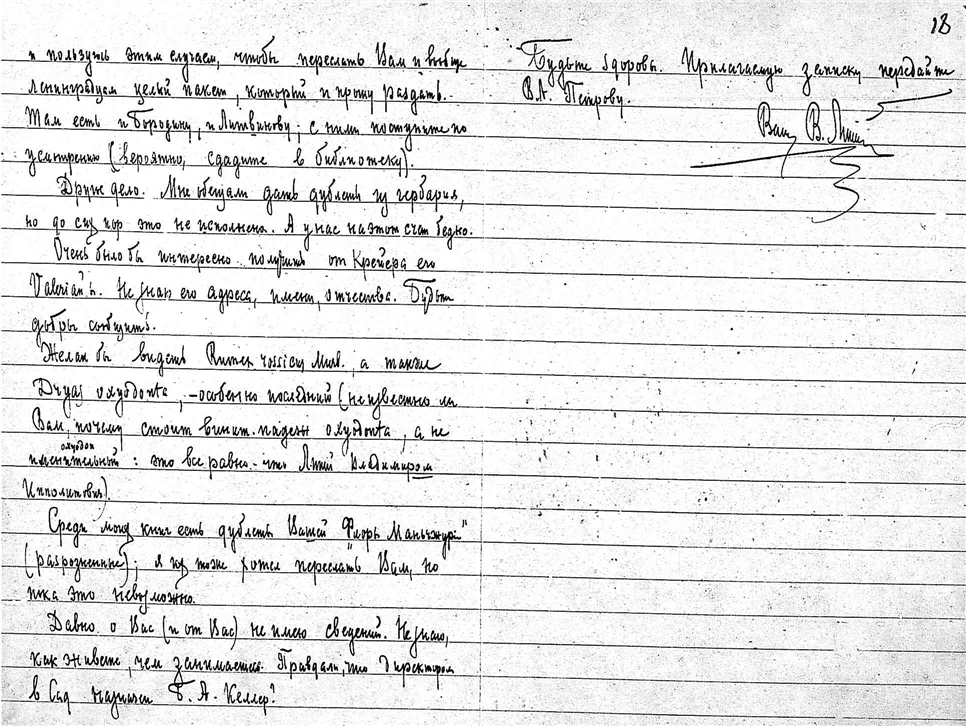 18
и пользуюсь этим случаем, чтобы переслать Вам и вообще
Ленинградцам целый пакет, который и прошу раздать.
Там есть и Бородину, и Литвинову; с ними поступите по
усмотрению (вероятно, сдадите в библиотеку).
Другое дело. Мне обещали дать дублеты из гербария,
но до сих пор это не исполнено. А у нас на этот счет бедно.
Очень было бы интересно получить от Крейера его
Valerian'ы. Не знаю его адреса, имени, отчества. Будьте
добры сообщить.
Желал бы видеть Rumex rossicus Murb., а также
Dryas oxyodonta, – особенно последний (неизвестно ли
Вам, почему стоит винит. падеж oxyodonta, а не
именительный oxyodon: это все равно что Липский Владимиром
Ипполитович).
Среди моих книг есть дублеты Вашей "Флоры Маньчжурии"
(разрозненные); я их тоже хотел переслать Вам, но
пока это невозможно.
Давно о Вас (и от Вас) не имею сведений. Не знаю,
как живете, чем занимаетесь. Правда ли, что директором
в Сад назначен Б. А. Келлер?
Будьте здоровы. Прилагаемую записку передайте
В.А. Петрову.
Ваш В. Липский